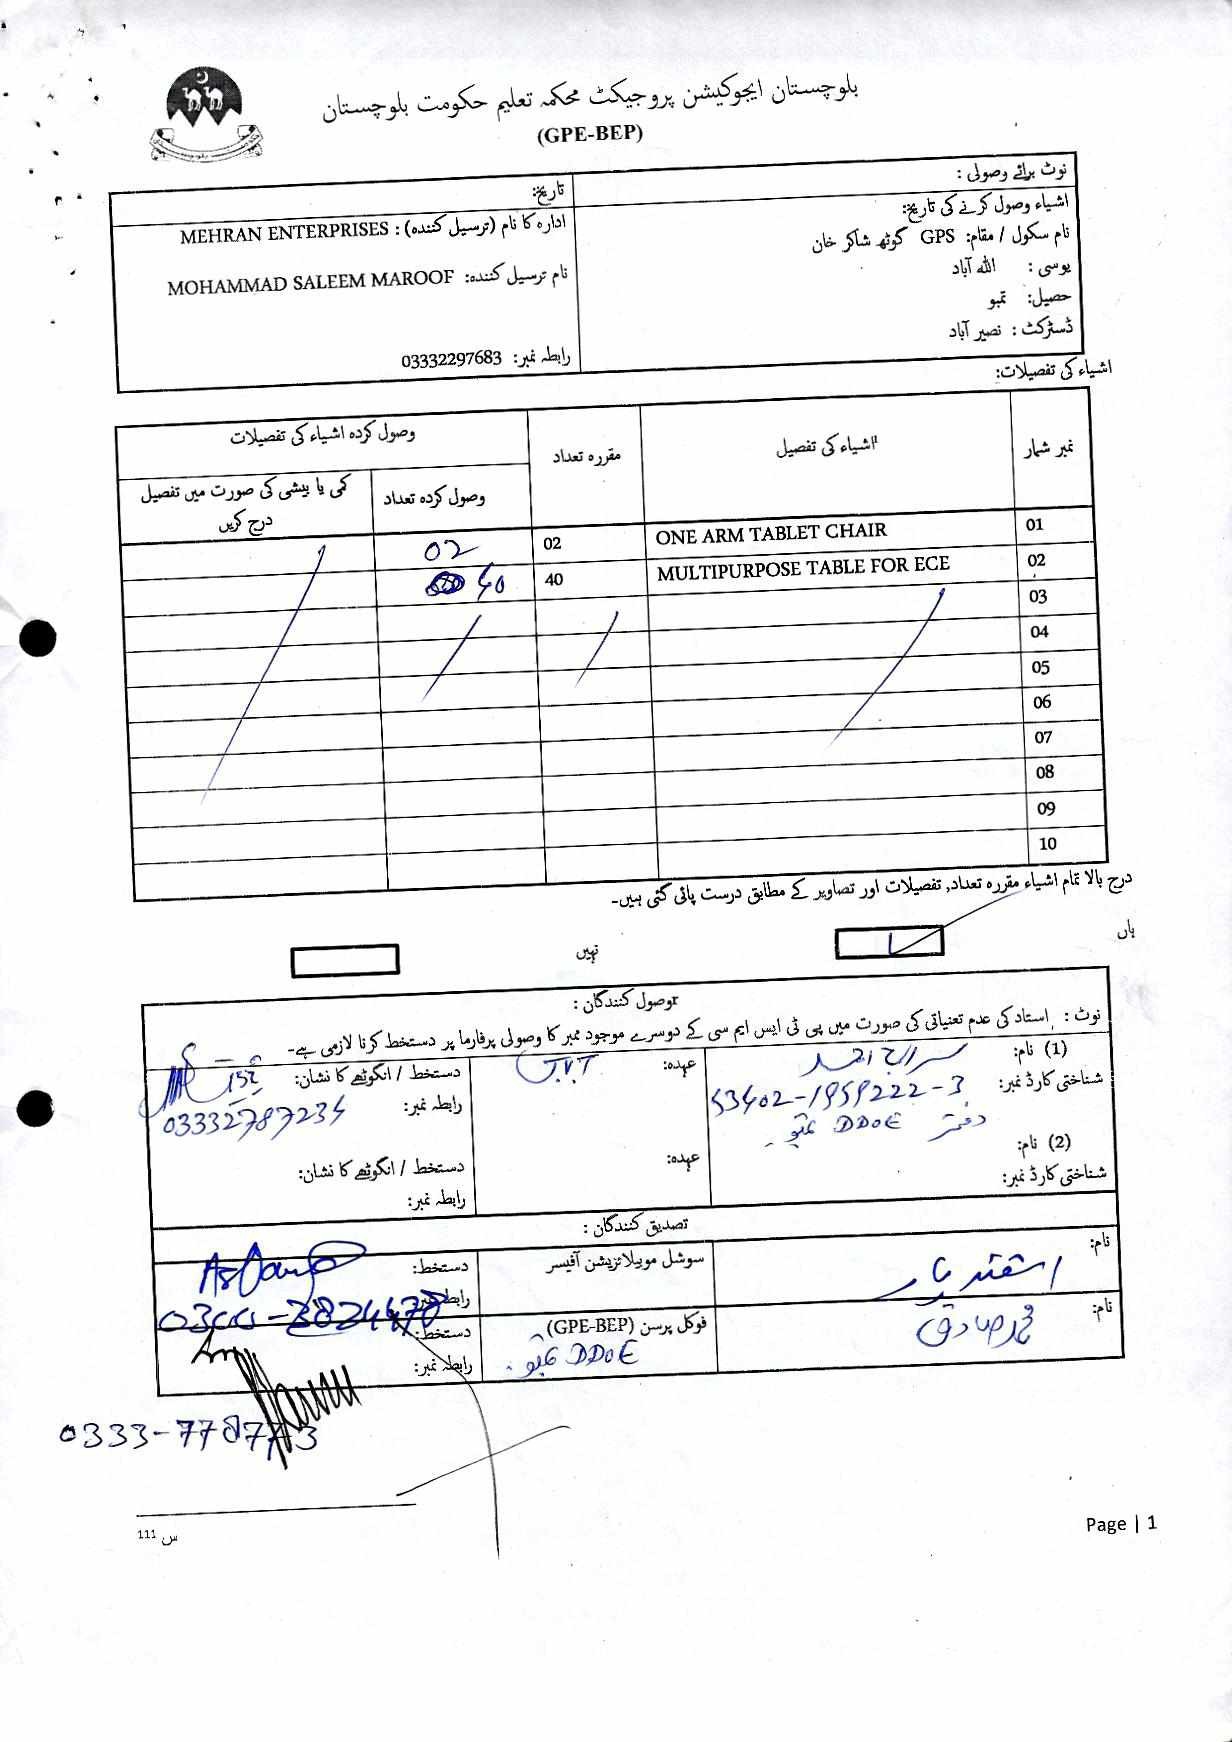 بلوچستان ایجوکیشن پروجیکٹ محکمہ تعلیم حکومت بلوچستان
(GPE-BEP)
نوٹ برائے وصولی :
اشیاء وصول کرنے کی تاریخ:
نام سکول / مقام: GPS گوٹھ شاکر خان
یوسی : اللہ آباد
حصیل: تمبو
ڈسٹرکٹ : نصیر آباد
تاریخ:
ادارہ کا نام (ترسیل کنندہ) : MEHRAN ENTERPRISES
نام ترسیل کنندہ: MOHAMMAD SALEEM MAROOF
رابطہ نمبر: 03332297683
اشیاء کی تفصیلات:
نمبر شمار اشیاء کی تفصیل مقررہ تعداد وصول کردہ اشیاء کی تفصیلات
وصول کردہ تعداد کمی یا بیشی کی صورت میں تفصیل درج کریں
01 ONE ARM TABLET CHAIR 02 02
02 MULTIPURPOSE TABLE FOR ECE 40 40
03
04
05
06
07
08
09
10
درج بالا تمام اشیاء مقررہ تعداد, تفصیلات اور تصاویر کے مطابق درست پائی گئی ہیں۔
ہاں نہیں
وصول کنندگان :
نوٹ : استاد کی عدم تعنیاتی کی صورت میں پی ٹی ایس ایم سی کے دوسرے موجود ممبر کا وصولی پرفارما پر دستخط کرنا لازمی ہے۔
(1) نام: سراج احمد عہدہ: J.V.T دستخط / انگوٹھے کا نشان:
شناختی کارڈ نمبر: 53402-1959222-3 رابطہ نمبر: 03332787234
دفتر DDOE تمبو
(2) نام: عہدہ: دستخط / انگوٹھے کا نشان:
شناختی کارڈ نمبر: رابطہ نمبر:
تصدیق کنندگان :
نام: اسفندیار سوشل موبیلائزیشن آفیسر دستخط:
رابطہ نمبر:
نام: محمد صادق فوکل پرسن (GPE-BEP) دستخط:
DDOE تمبو رابطہ نمبر:
س 111
Page | 1